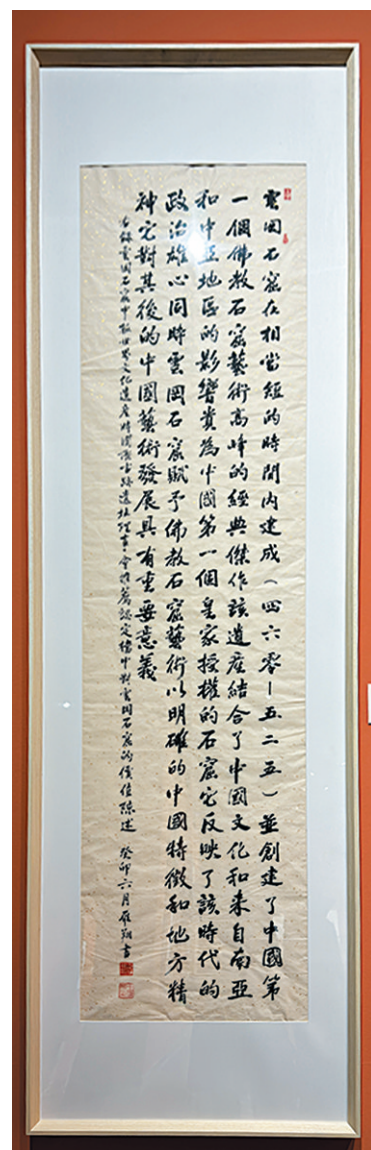 雲岡石窟在相當短的時間內建成（四六零—五二五）並創建了中國第
一個佛教石窟藝術高峰的經典傑作該遺產結合了中國文化和來自南亞
和中亞地區的影響貴為中國第一個皇家授權的石窟它反映了該時代的
政治雄心同時雲岡石窟賦予佛教石窟藝術以明確的中國特徵和地方精
神它對其後的中國藝術發展具有重要意義
右錄雲岡石窟申報世界文化遺產時國際古跡遺址理事會推薦認定稿中對雲岡石窟的價值陳述 癸卯六月雁翔書